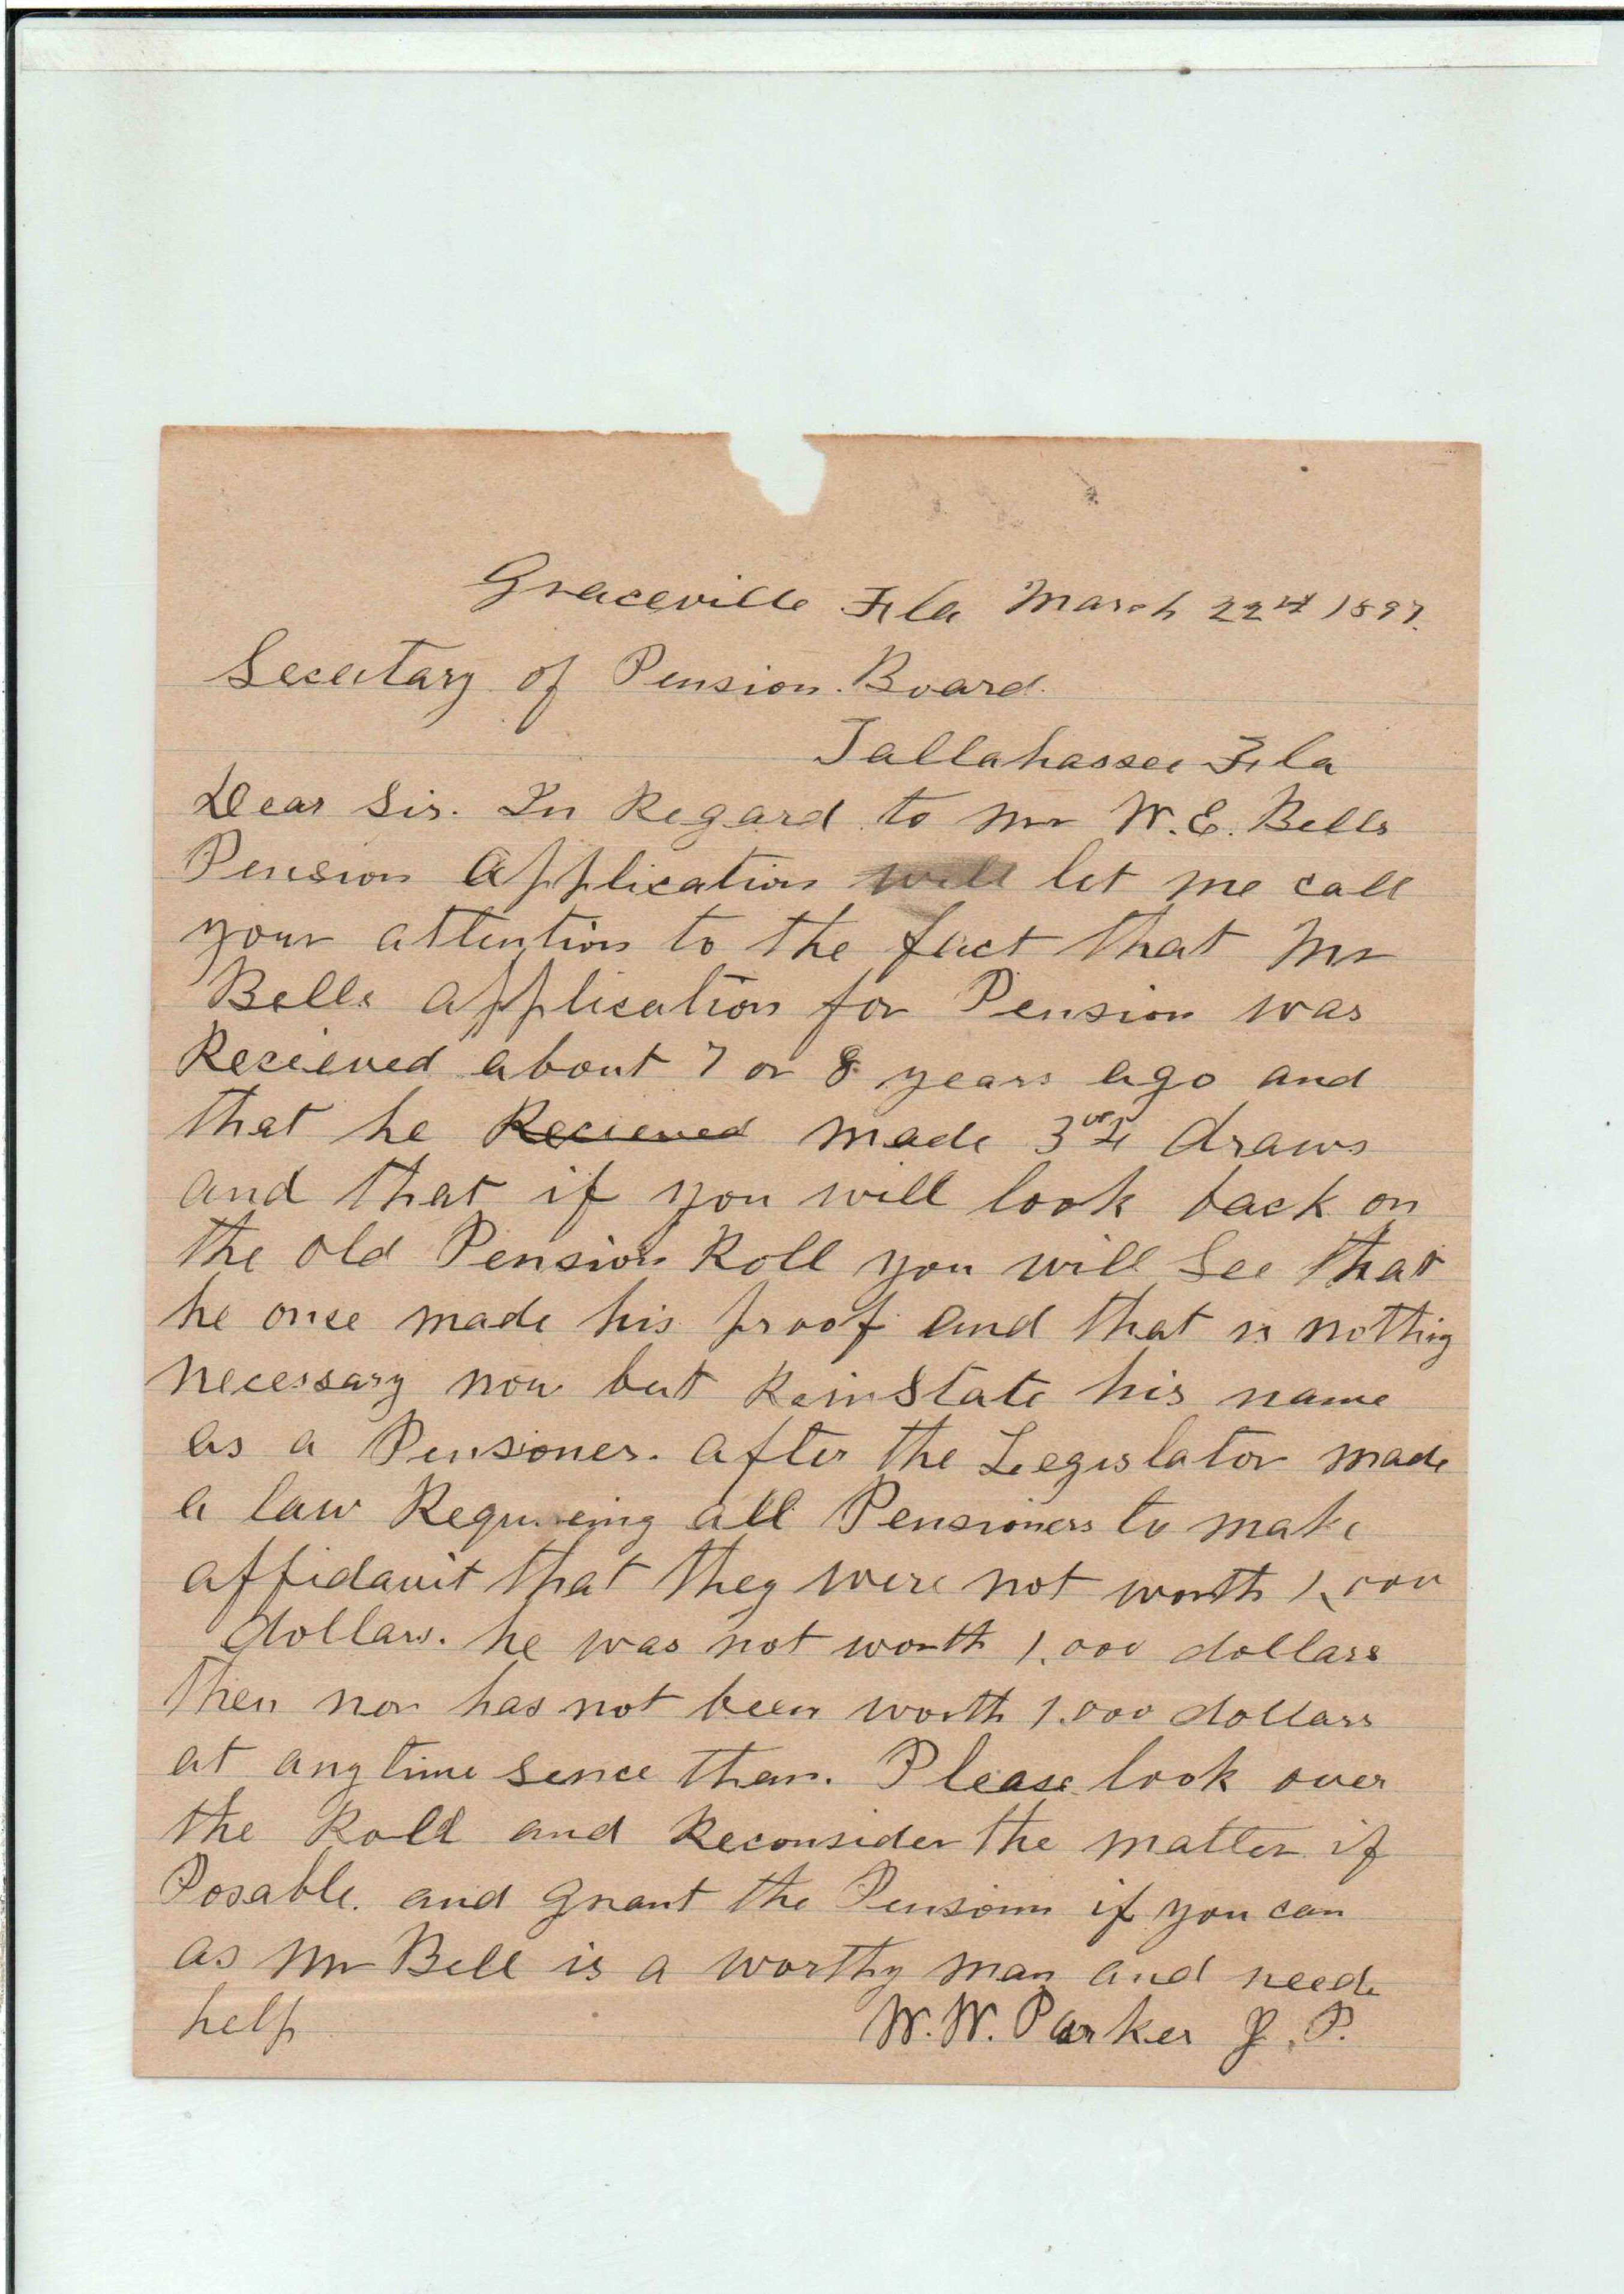 Graceville Fla March 22nd 1897.
Secetary of Pension. Board.
Tallahassee Fla
Dear Sir. In Regard to Mr W. E. Bells
Pension Application will let me call
your attention to the fact that Mr
Bells application for Pension was
Recieved about 7 or 8 years ago and
that he Recieved made 3 or 4 draws
and that if you will look back on
the old Pension Roll you will See that
he once made his proof and that is nothig
necessary now but ReinState his name
as a Pensioner. after the Legislator made
a law Requireing all Pensioners to make
affidavit that they were not worth 1,000
dollars. he was not worth 1.000 dollars
then nor has not been worth 1.000 dollars
at any time sence then. Please look over
the Roll and Reconsider the matter if
Posable. and grant the Pension if you can
as Mr Bell is a worthy man and needs
help
W. W. Parker J. P.